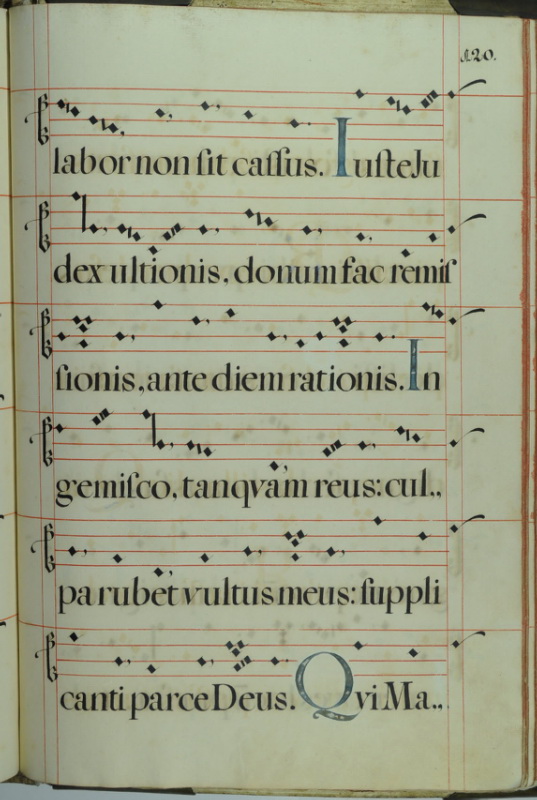 120.
labor non ſit caſſus. Iuste Ju
dex ultionis, donum fac remiſ
ſionis, ante diem rationis. In
gemiſco, tanqvam reus: cul,,
pa rubet vultus meus: ſuppli
canti parce Deus. Qvi Ma,,